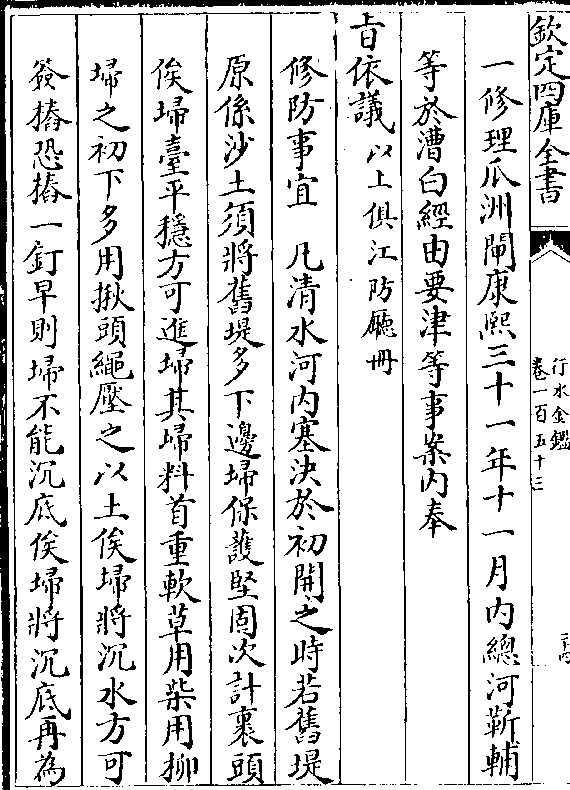 欽定四庫全書
行水金鑑
卷一百五十三
一修理瓜洲閘康熙三十一年十一月內總河靳輔
等於漕白經由要津等事案內奉
旨依議以上俱江防廳冊
修防事宜 凡清水河內塞決於初開之時若舊堤
原係沙土須將舊堤多下邊埽保護堅固次計裹頭
俟埽臺平穩方可進埽其埽料首重軟草用柴用柳
埽之初下多用揪頭繩壓之以土俟埽將沉水方可
簽樁恐樁一釘早則埽不能沉底俟埽將沉底再為